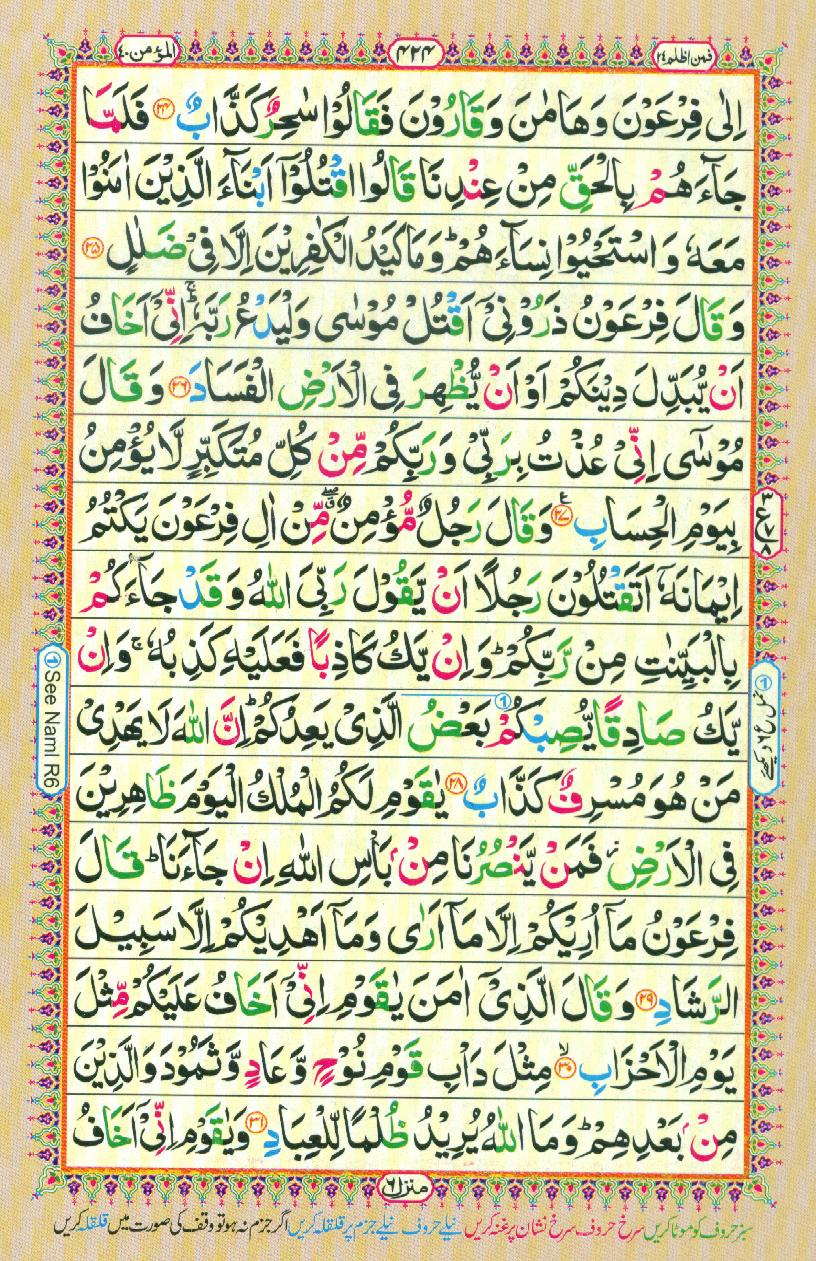 فمن اظلم ٢٤
٤٢٤
المؤمن ٤٠
اِلٰى فِرْعَوْنَ وَهَامٰنَ وَقَارُوْنَ فَقَالُوْا سٰحِرٌ كَذَّابٌ ﴿٢٤﴾ فَلَمَّا
جَآءَهُمْ بِالْحَقِّ مِنْ عِنْدِنَا قَالُوا اقْتُلُوْٓا اَبْنَآءَ الَّذِيْنَ اٰمَنُوْا
مَعَهٗ وَاسْتَحْيُوْا نِسَآءَهُمْ ؕ وَمَا كَيْدُ الْكٰفِرِيْنَ اِلَّا فِىْ ضَلٰلٍ ﴿٢٥﴾
وَقَالَ فِرْعَوْنُ ذَرُوْنِىْٓ اَقْتُلْ مُوْسٰى وَلْيَدْعُ رَبَّهٗ ۚ اِنِّىْٓ اَخَافُ
اَنْ يُّبَدِّلَ دِيْنَكُمْ اَوْ اَنْ يُّظْهِرَ فِى الْاَرْضِ الْفَسَادَ ﴿٢٦﴾ وَقَالَ
مُوْسٰٓى اِنِّىْ عُذْتُ بِرَبِّىْ وَرَبِّكُمْ مِّنْ كُلِّ مُتَكَبِّرٍ لَّا يُؤْمِنُ
بِيَوْمِ الْحِسَابِ ﴿٢٧﴾ وَقَالَ رَجُلٌ مُّؤْمِنٌ ۖ مِّنْ اٰلِ فِرْعَوْنَ يَكْتُمُ
اِيْمَانَهٗٓ اَتَقْتُلُوْنَ رَجُلًا اَنْ يَّقُوْلَ رَبِّىَ اللّٰهُ وَقَدْ جَآءَكُمْ
بِالْبَيِّنٰتِ مِنْ رَّبِّكُمْ ؕ وَاِنْ يَّكُ كَاذِبًا فَعَلَيْهِ كَذِبُهٗ ۚ وَاِنْ
يَّكُ صَادِقًا يُّصِبْكُمْ ① بَعْضُ الَّذِىْ يَعِدُكُمْ ؕ اِنَّ اللّٰهَ لَا يَهْدِىْ
مَنْ هُوَ مُسْرِفٌ كَذَّابٌ ﴿٢٨﴾ يٰقَوْمِ لَكُمُ الْمُلْكُ الْيَوْمَ ظَاهِرِيْنَ
فِى الْاَرْضِ ؗ فَمَنْ يَّنْصُرُنَا مِنْۢ بَاْسِ اللّٰهِ اِنْ جَآءَنَا ؕ قَالَ
فِرْعَوْنُ مَآ اُرِيْكُمْ اِلَّا مَآ اَرٰى وَمَآ اَهْدِيْكُمْ اِلَّا سَبِيْلَ
الرَّشَادِ ﴿٢٩﴾ وَقَالَ الَّذِىْٓ اٰمَنَ يٰقَوْمِ اِنِّىْٓ اَخَافُ عَلَيْكُمْ مِّثْلَ
يَوْمِ الْاَحْزَابِ ۙ﴿٣٠﴾ مِثْلَ دَاْبِ قَوْمِ نُوْحٍ وَّعَادٍ وَّثَمُوْدَ وَالَّذِيْنَ
مِنْۢ بَعْدِهِمْ ؕ وَمَا اللّٰهُ يُرِيْدُ ظُلْمًا لِّلْعِبَادِ ﴿٣١﴾ وَيٰقَوْمِ اِنِّىْٓ اَخَافُ
① See Naml R6
منزل ٦
سبز حروف کو موٹا کریں سرخ حروف، سرخ نشان پر غنہ کریں نیلے حروف نیلے جزم پر قلقلہ کریں اگر جزم نہ ہو تو وقف کی صورت میں قلقلہ کریں